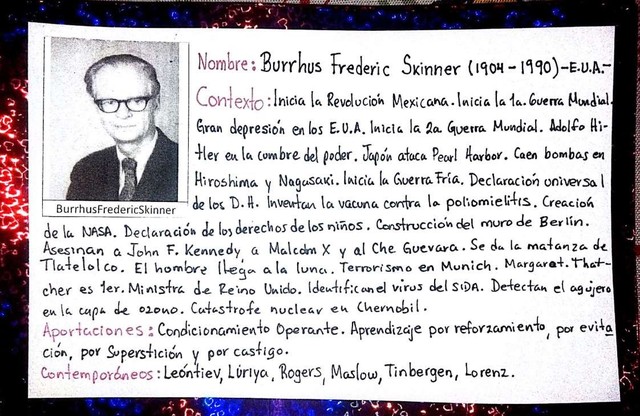 Nombre: Burrhus Frederic Skinner (1904-1990)-E.U.A.-
Contexto: Inicia la Revolución Mexicana. Inicia la 1a. Guerra Mundial.
Gran depresión en los E.U.A. Inicia la 2a Guerra Mundial. Adolfo Hi-
tler en la cumbre del poder. Japón ataca Pearl Harbor. Caen bombas en
Hiroshima y Nagasaki. Inicia la Guerra Fría. Declaración universal
de los D.H. Inventan la vacuna contra la poliomielitis. Creación
BurrhusFredericSkinner
de la NASA. Declaración de los derechos de los niños. Construcción del muro de Berlín.
Asesinan a John F. Kennedy, a Malcolm X y al Che Guevara. Se da la matanza de
Tlatelolco. El hombre llega a la luna. Terrorismo en Munich. Margaret. That-
cher es 1er. Ministra de Reino Unido. Identifican el virus del SIDA. Detectan el agujero
en la capa de ozono. Catastrofe nuclear en Chernobil.
Aportaciones: Condicionamiento Operante. Aprendizaje por reforzamiento, por evita
ción, por Superstición y por castigo.
Contemporáneos: Leóntiev, Lúriya, Rogers, Maslow, Tinbergen, Lorenz.